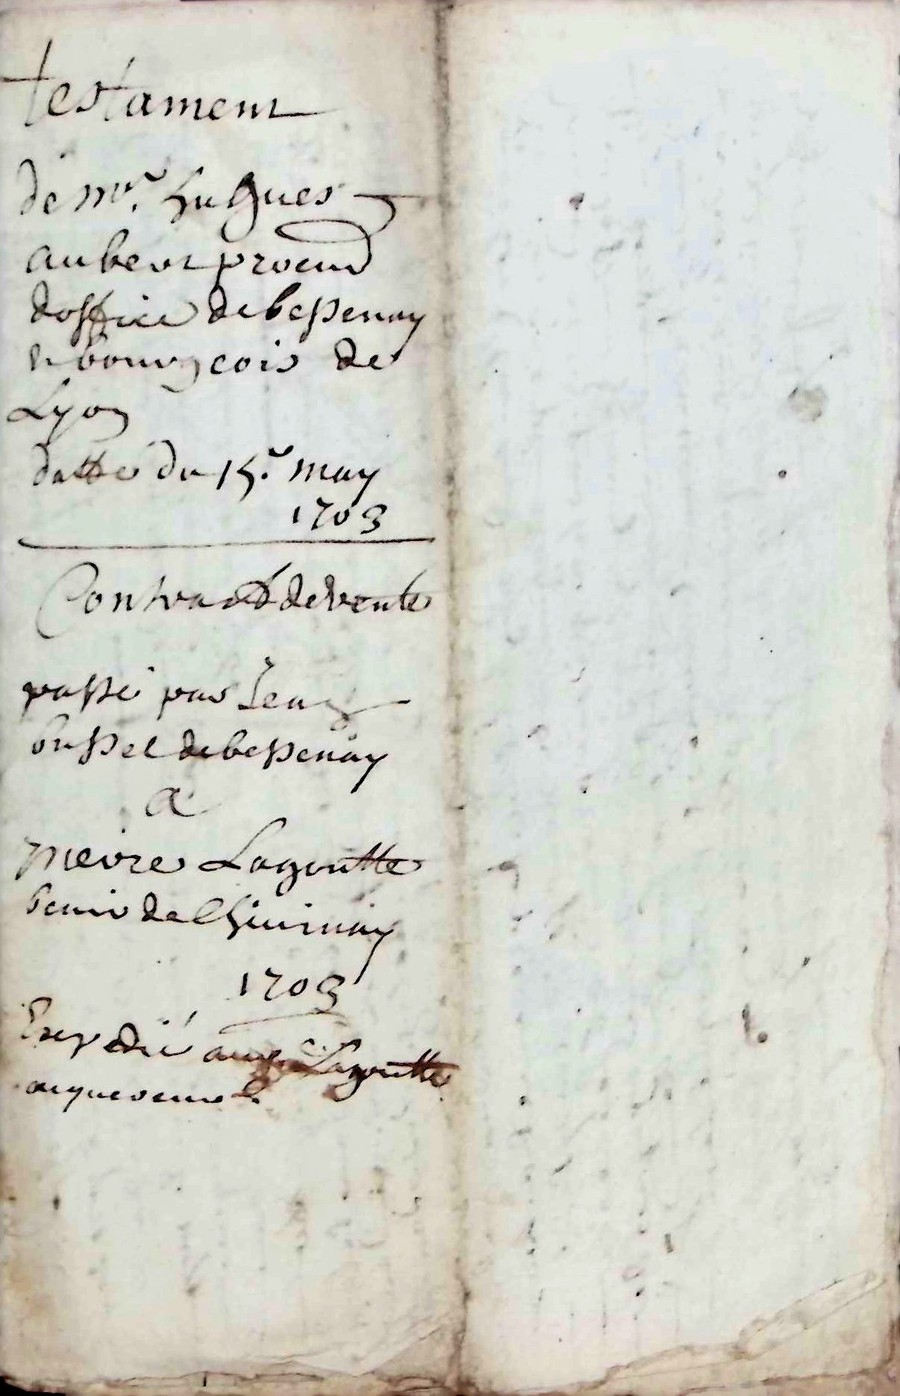 testament
de mr. hugues
aubert procur
doffice de bessenay
et bourgeois de
Lyon
datté du 15e may
1703
Contract de vente
passé par Jean
de bessenay
a
pierre Lagoutte
de Chivinay
1703
Expedié aud. Lagoutte
acquereur